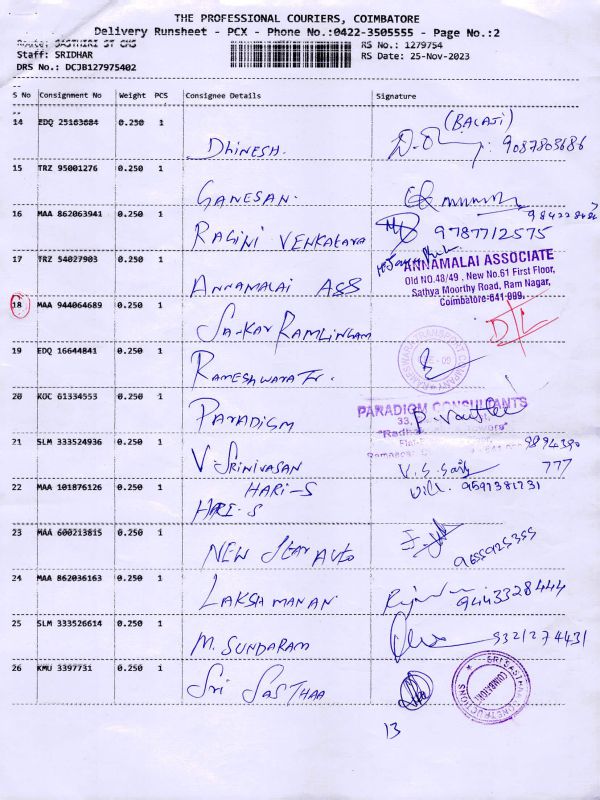 THE PROFESSIONAL COURIERS, COIMBATORE
Delivery Runsheet - PCX - Phone No.:0422-3505555 - Page No.:2
Route: SASTHIRI ST CMS
RS No.: 1279754
Staff: SRIDHAR
RS Date: 25-Nov-2023
DRS No.: DCJB127975402
S No Consignment No Weight PCS Consignee Details Signature
14 EDQ 25163684 0.250 1 DhINESH. (BALAJI) 9087803686
15 TRZ 95001276 0.250 1 GANESAN.
16 MAA 862063941 0.250 1 RAGINI VENKATARA 9787712575
17 TRZ 54027903 0.250 1 ANNAMALAI ASS
ANNAMALAI ASSOCIATE
Old NO.48/49, New No.61 First Floor,
Sathya Moorthy Road, Ram Nagar,
Coimbatore-641 009.
18 MAA 944064689 0.250 1 RAMLINGAM
D/L
19 EDQ 16644841 0.250 1 RAMESHWARA Tr.
20 KOC 61334553 0.250 1 PARADIGM
PARADIGM CONSULTANTS
21 SLM 333524936 0.250 1 V SRINIVASAN 9894390
777
22 MAA 101876126 0.250 1 HARI-S
HARI-S 9597381731
23 MAA 600213815 0.250 1 NEW STAR AUTO 9655925355
24 MAA 862036163 0.250 1 LAKSHMANAN 9443328444
25 SLM 333526614 0.250 1 M. SUNDARAM 9321274431
26 KMU 3397731 0.250 1 Sri SASTHAA
SRI SASTHAA CONSTRUCTIONS
COIMBATORE
13